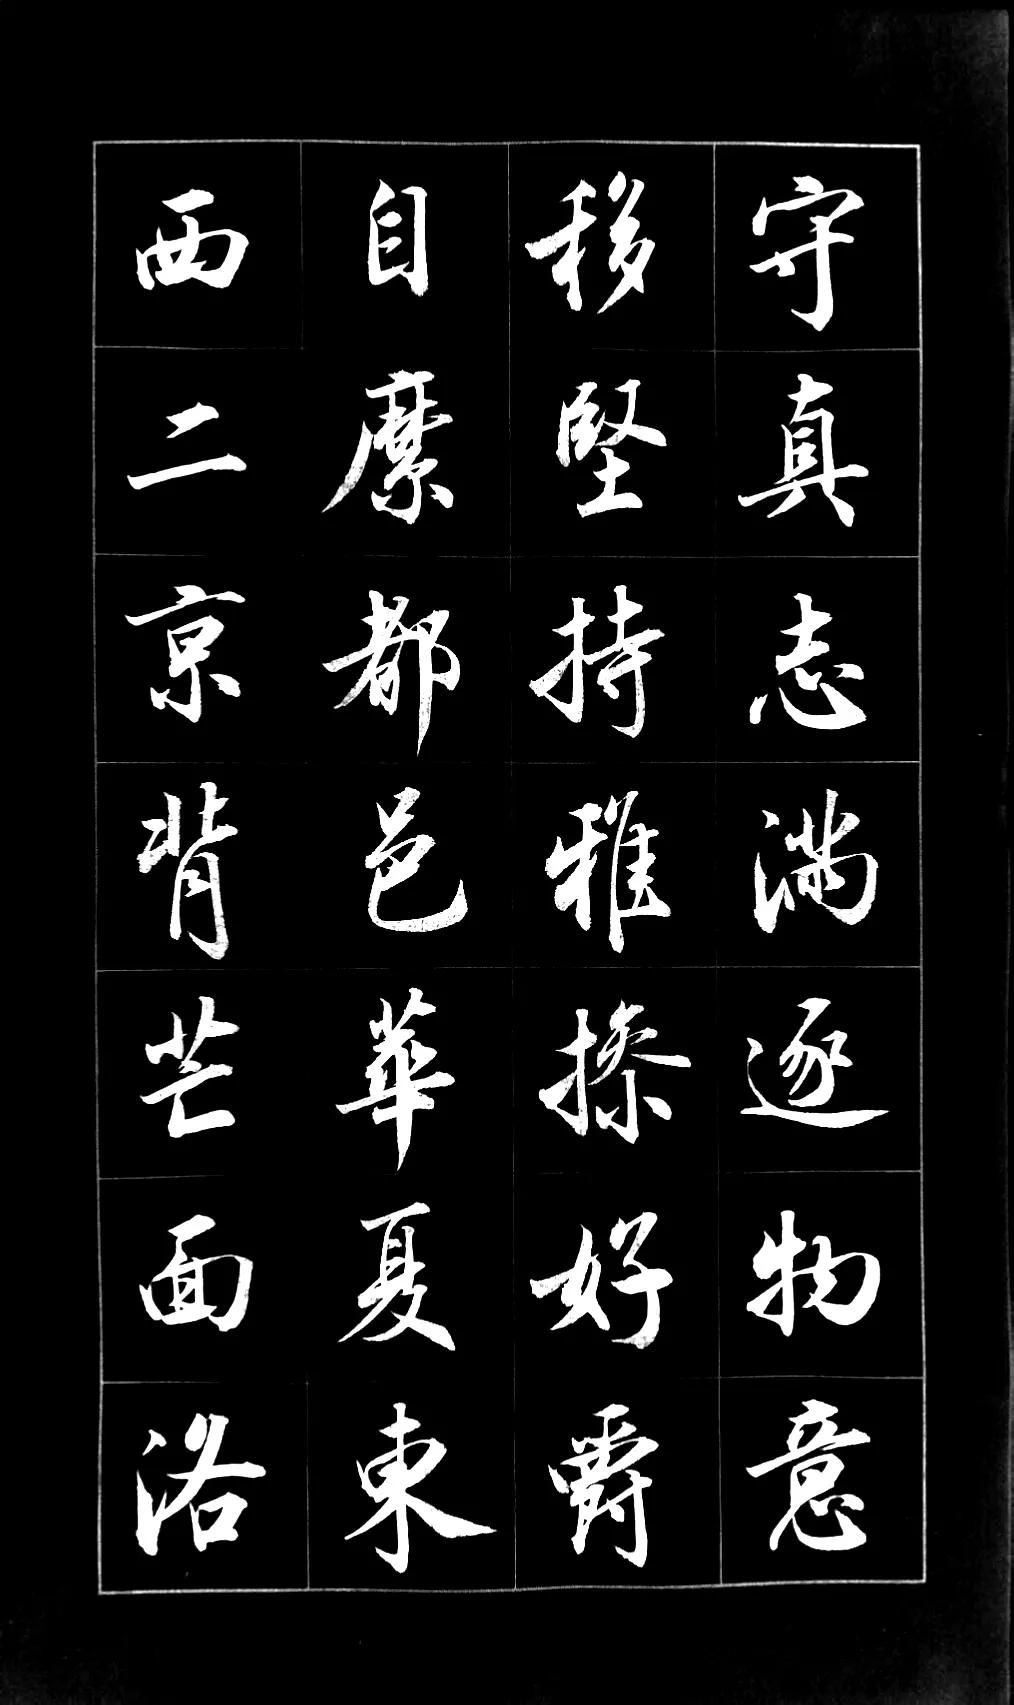 守真志滿逐物意
移堅持雅操好爵
自縻都邑華夏東
西二京背芒面洛